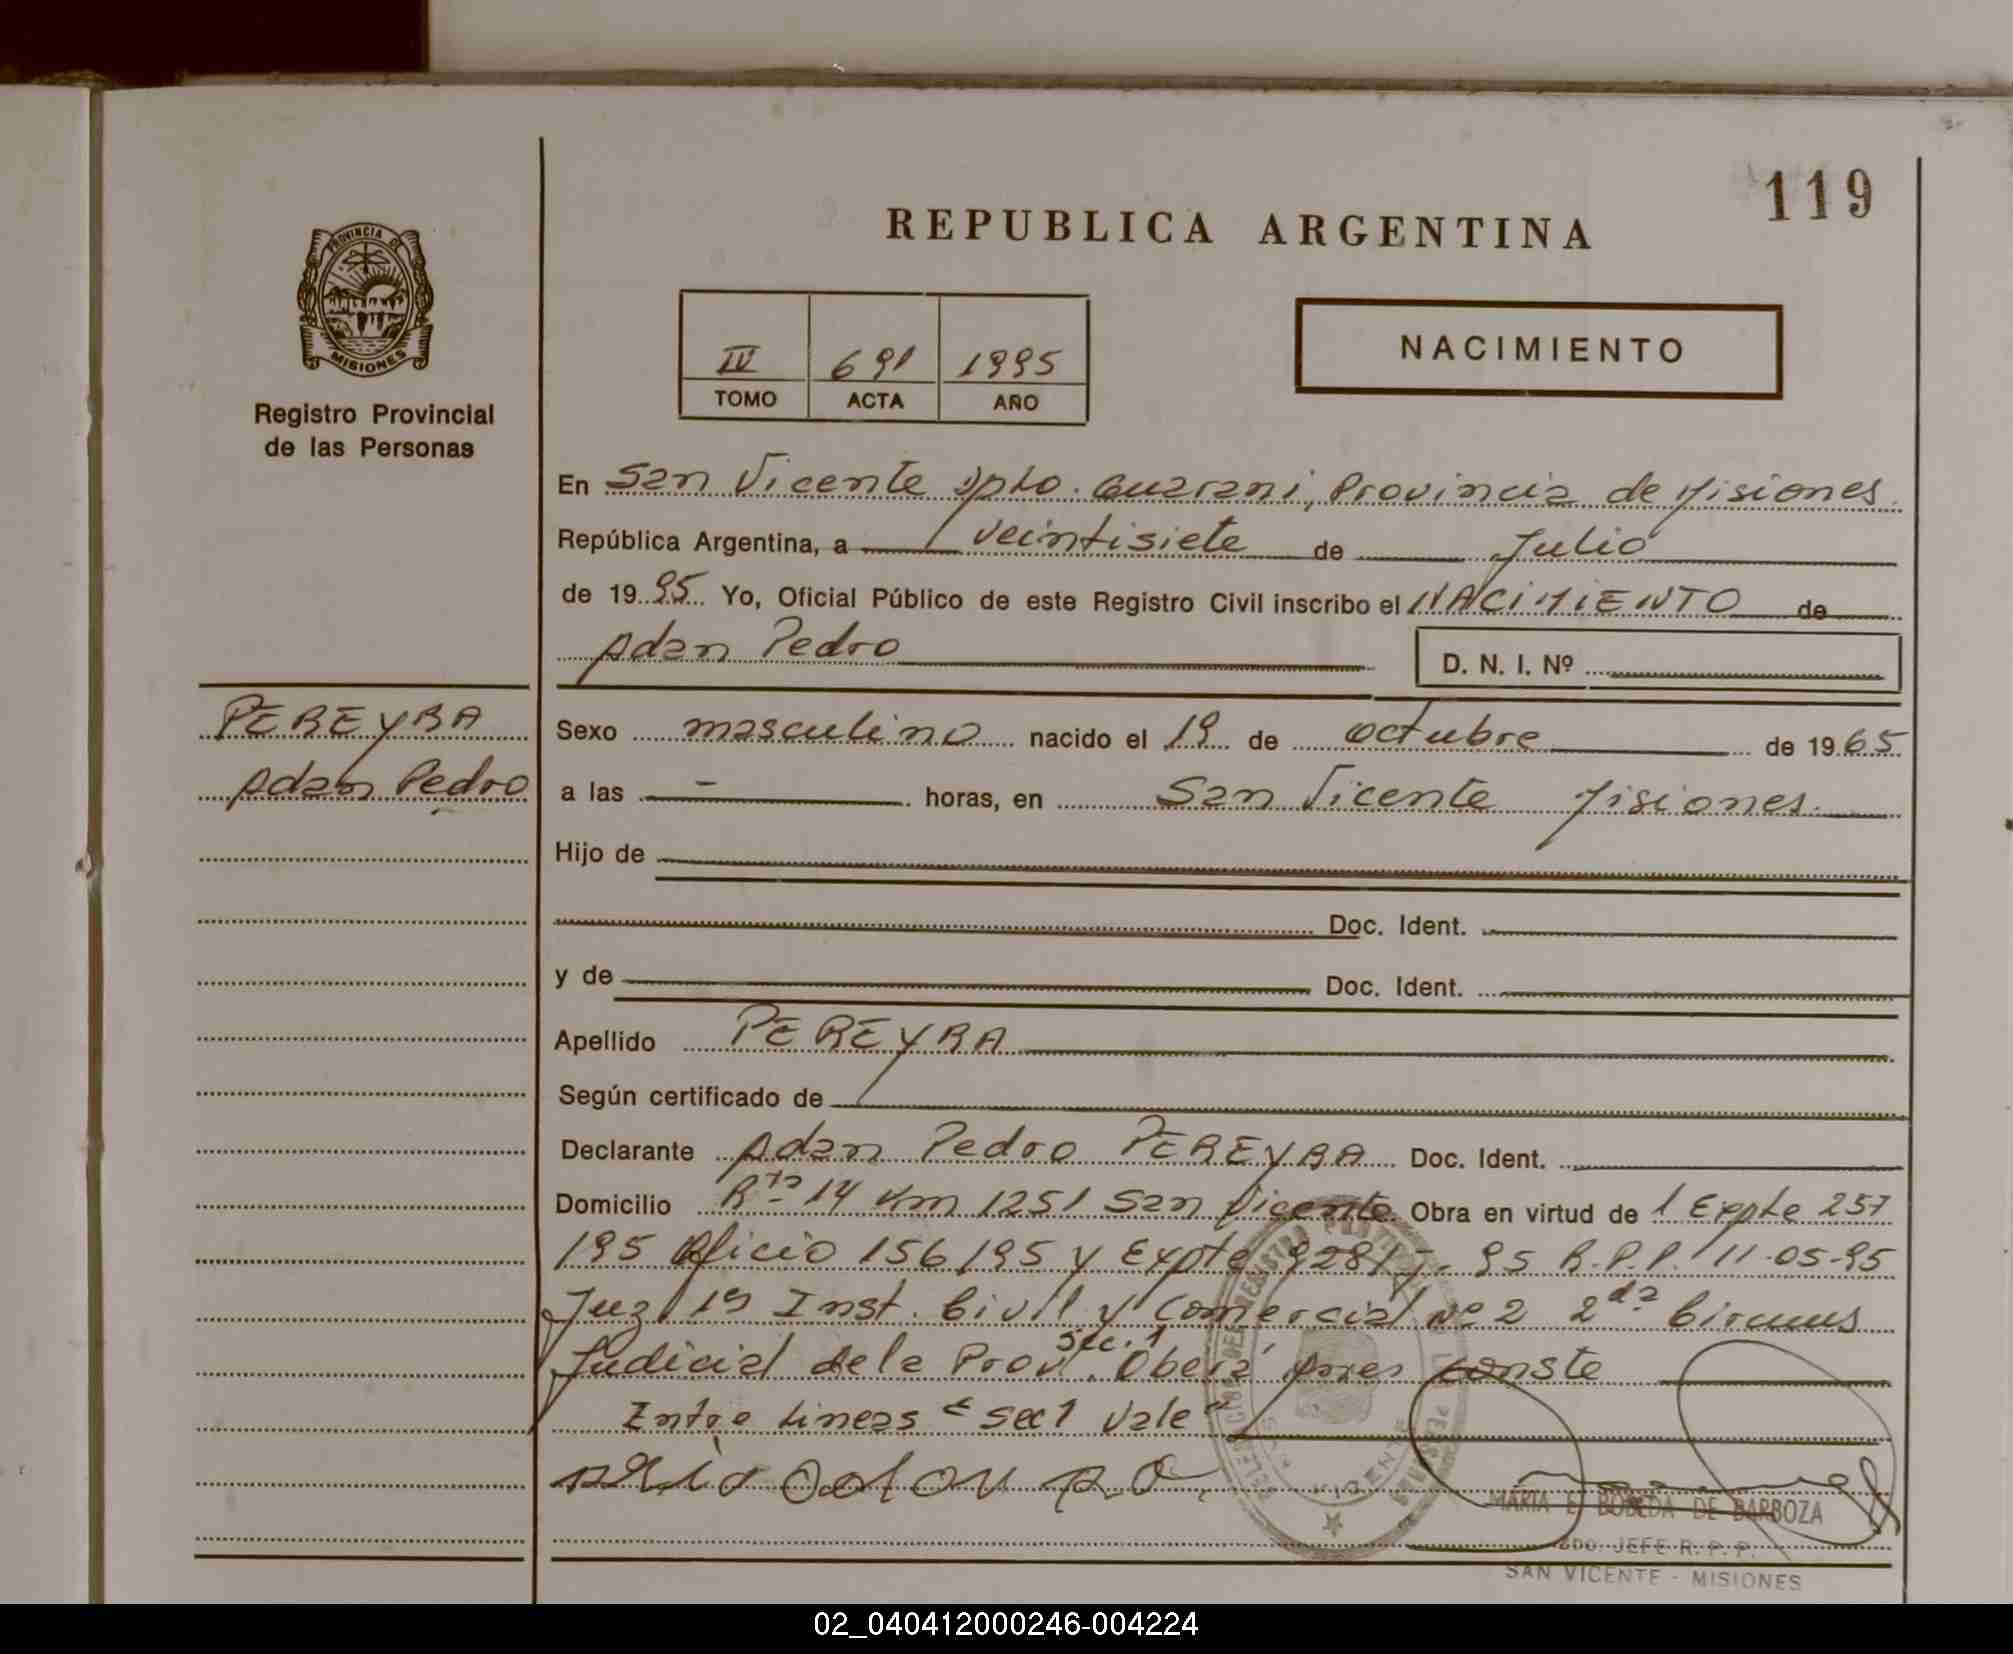 119
REPUBLICA ARGENTINA
PROVINCIA DE
MISIONES
Registro Provincial
de las Personas
IV 691 1995
TOMO ACTA AÑO
NACIMIENTO
En San Vicente Dpto. Guarani, Provincia de Misiones
República Argentina, a veintisiete de Julio
de 1995 Yo, Oficial Público de este Registro Civil inscribo el NACIMIENTO de
Adan Pedro D. N. I. Nº
PEREYRA
Adan Pedro
Sexo masculino nacido el 19 de octubre de 1965
a las - horas, en San Vicente Misiones
Hijo de
Doc. Ident.
y de Doc. Ident.
Apellido PEREYRA
Según certificado de
Declarante Adan Pedro PEREYRA Doc. Ident.
Domicilio Rta 14 Km 1251 San Vicente Obra en virtud de Expte 257
195 Oficio 156/95 y Expte 95 R.P.P. 11-05-95
Juz Inst. Civil y Comercial Nº 2 2da Circuns
Judicial de la Prov. Sec. 1 Oberá conste
Entre Lineas "Sec 1 Vale"
MARIA E BOBEDA DE BARBOZA
JEFE R. P. P.
SAN VICENTE - MISIONES
02_040412000246-004224